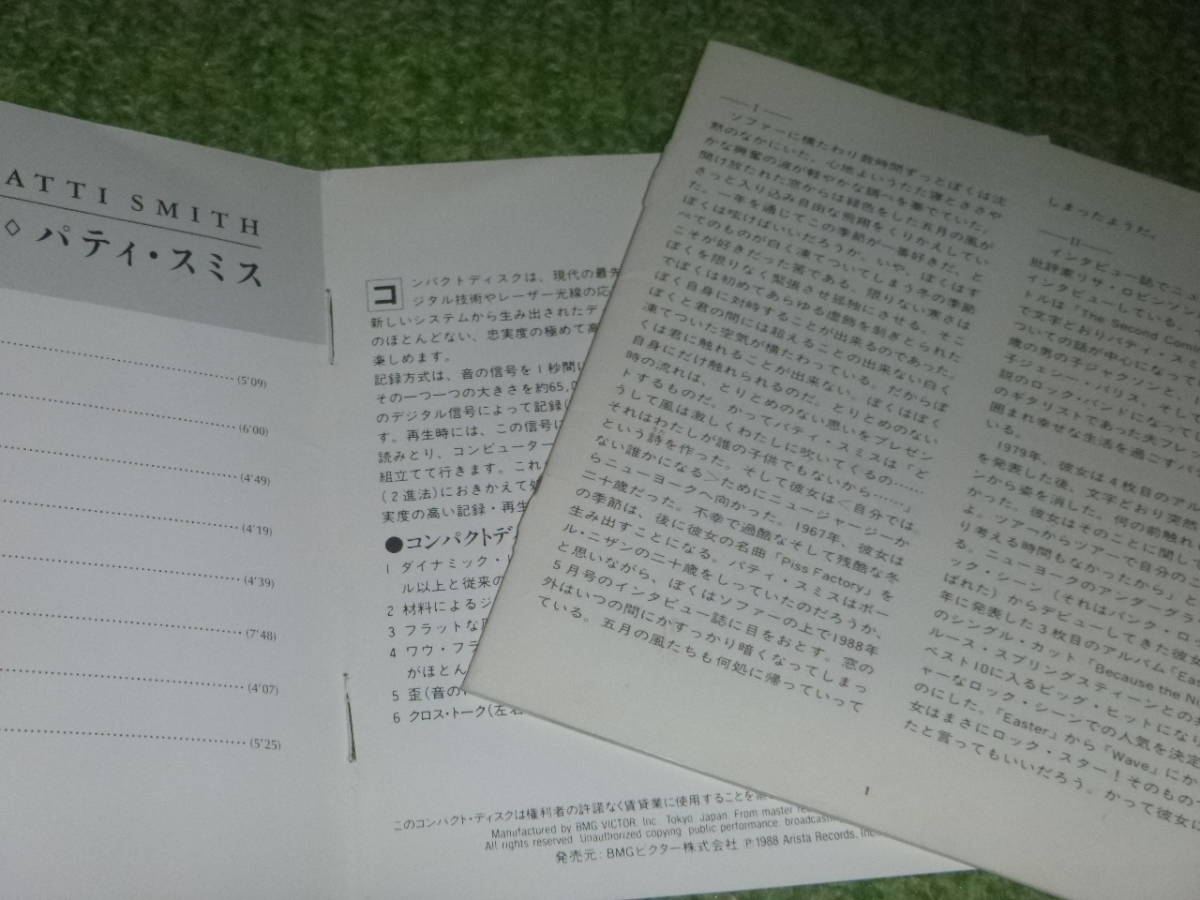 ATTI SMITH
◇ パティ・スミス
(5'09)
(6'00)
(4'49)
(4'19)
(4'39)
(7'48)
(4'07)
(5'25)
コンパクトディスクは、現代の最先
ジタル技術やレーザー光線の応
新しいシステムから生み出されたデ
のほとんどない、忠実度の極めて高
楽しめます。
記録方式は、音の信号を1秒間に
その一つ一つの大きさを約65,0
のデジタル信号によって記録(
す。再生時には、この信号に
読みとり、コンピューター
組立てて行きます。これ
(2進法)におきかえて処
実度の高い記録・再生
●コンパクトデ
1 ダイナミック・
ル以上と従来の
2 材料によるジ
3 フラットな
4 ワウ・フラ
がほとん
5 歪(音の
6 クロス・トーク(左右
このコンパクト・ディスクは権利者の許諾なく賃貸業に使用することを
Manufactured by BMG VICTOR, Inc. Tokyo, Japan. From master
All rights reserved. Unauthorized copying, public performance, broadcast
発売元:BMGビクター株式会社 ℗1988 Arista Records, Inc
—I—
ソファーに横たわり数時間ずっとぼくは沈
黙のなかにいた。心地よいうたた寝とささや
かな興奮の波が軽やかな調べを奏でていた。
開け放たれた窓からは緑色をした五月の風が
さっと入り込み自由な飛翔をくりかえしてい
た。一年を通じてこの季節が一番好きだ、と
ぼくは呟けばいいだろうか。いや、ぼくはす
べてのものが白く凍てついてしまう冬の季節
こそが好きだった筈である。限りない寒さは
ぼくを限りなく緊張させ孤独にさせる。そこ
でぼくは初めてあらゆる虚飾を剥ぎとられた
ぼく自身に対峙することが出来るのであった。
ぼくと君の間には超えることの出来ない白く
凍てついた空気が横たわっている。だからぼ
くは君に触れることが出来ない。ぼくはぼく
自身にだけ触れられるのだ。とりとめのない
時の流れは、とりとめのない思いをプレゼン
トするものだ。かつてパティ・スミスは「ど
うして風は激しくわたしに吹いてくるの……
それはわたしが誰の子供でもないから……」
という詩を作った。そして彼女は<自分では
ない誰かになる>ためにニュージャージーか
らニューヨークへ向かった。1967年、彼女は
二十歳だった。不幸で過酷なそして残酷な冬
の季節は、後に彼女の名曲「Piss Factory」を
生み出すことになる。パティ・スミスはポー
ル・ニザンの二十歳をしっていたのだろうか、
と思いながら、ぼくはソファーの上で1988年
5月号のインタビュー誌に目をおとす。窓の
外はいつの間にかすっかり暗くなってしまっ
ている。五月の風たちも何処に帰っていって
しまったようだ。
—II—
インタビュー誌で
批評家リサ・ロビンソン
インタビューしている。
トルは"The Second Comi
で文字どおりパティ・スミ
ついての話が中心になって
歳の男の子ジャクソンと、
子ジェシー・パリス、そして
説のロック・バンドになって
のギタリストであった夫フレッ
囲まれ幸せな生活を過ごす
いる。
1979年、彼女は4枚目のアル
を発表した後、文字どおり突然
ンから姿を消した。何の前触れ
かった。彼女はそのことに関して
よ。ツアーからツアーで自分の
り考える時間もなかったから」と
る。ニューヨークのアンダーグラ
ック・シーン(それはパンク・ロ
ばれた)からデビューしてきた彼女
年に発表した3枚目のアルバム「Eas
のシングル・カット「Because the N
ルース・スプリングスティーンとの
ベスト10に入るビッグ・ヒットになり
ャーなロック・シーンでの人気を決定
のにした。「Easter」から「Wave」にか
女はまさにロック・スター!そのもの
たと言ってもいいだろう。かって彼女に
1